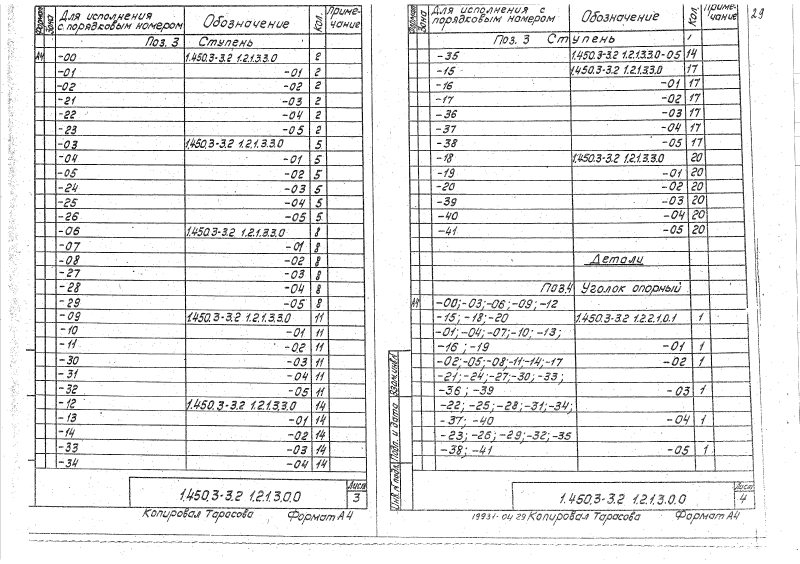 Формат Зона Для исполнения с порядковым номером Обозначение Кол. Приме-чание
Поз. 3 Ступень
А4 -00 1.450.3-3.2 1.2.1.3.3.0 2
-01 -01 2
-02 -02 2
-21 -03 2
-22 -04 2
-23 -05 2
-03 1.450.3-3.2 1.2.1.3.3.0 5
-04 -01 5
-05 -02 5
-24 -03 5
-25 -04 5
-26 -05 5
-06 1.450.3-3.2 1.2.1.3.3.0 8
-07 -01 8
-08 -02 8
-27 -03 8
-28 -04 8
-29 -05 8
-09 1.450.3-3.2 1.2.1.3.3.0 11
-10 -01 11
-11 -02 11
-30 -03 11
-31 -04 11
-32 -05 11
-12 1.450.3-3.2 1.2.1.3.3.0 14
-13 -01 14
-14 -02 14
-33 -03 14
-34 -04 14
1.450.3-3.2 1.2.1.3.0.0 Лист 3
Копировал Тарасова Формат А4
29
Формат Зона Для исполнения с порядковым номером Обозначение Кол. Приме-чание
Поз. 3 Ступень
-35 1.450.3-3.2 1.2.1.3.3.0-05 14
-15 1.450.3-3.2 1.2.1.3.3.0 17
-16 -01 17
-17 -02 17
-36 -03 17
-37 -04 17
-38 -05 17
-18 1.450.3-3.2 1.2.1.3.3.0 20
-19 -01 20
-20 -02 20
-39 -03 20
-40 -04 20
-41 -05 20
Детали
Поз.4 Уголок опорный
А4 -00; -03; -06; -09; -12
-15; -18; -20 1.450.3-3.2 1.2.2.1.0.1 1
-01; -04; -07; -10; -13;
-16; -19 -01 1
-02; -05; -08; -11; -14; -17 -02 1
-21; -24; -27; -30; -33;
-36; -39 -03 1
-22; -25; -28; -31; -34;
-37; -40 -04 1
-23; -26; -29; -32; -35
-38; -41 -05 1
Инв. N подл. Подп. и дата Взам.инв.
1.450.3-3.2 1.2.1.3.0.0 Лист 4
19931-04 29 Копировал Тарасова Формат А4